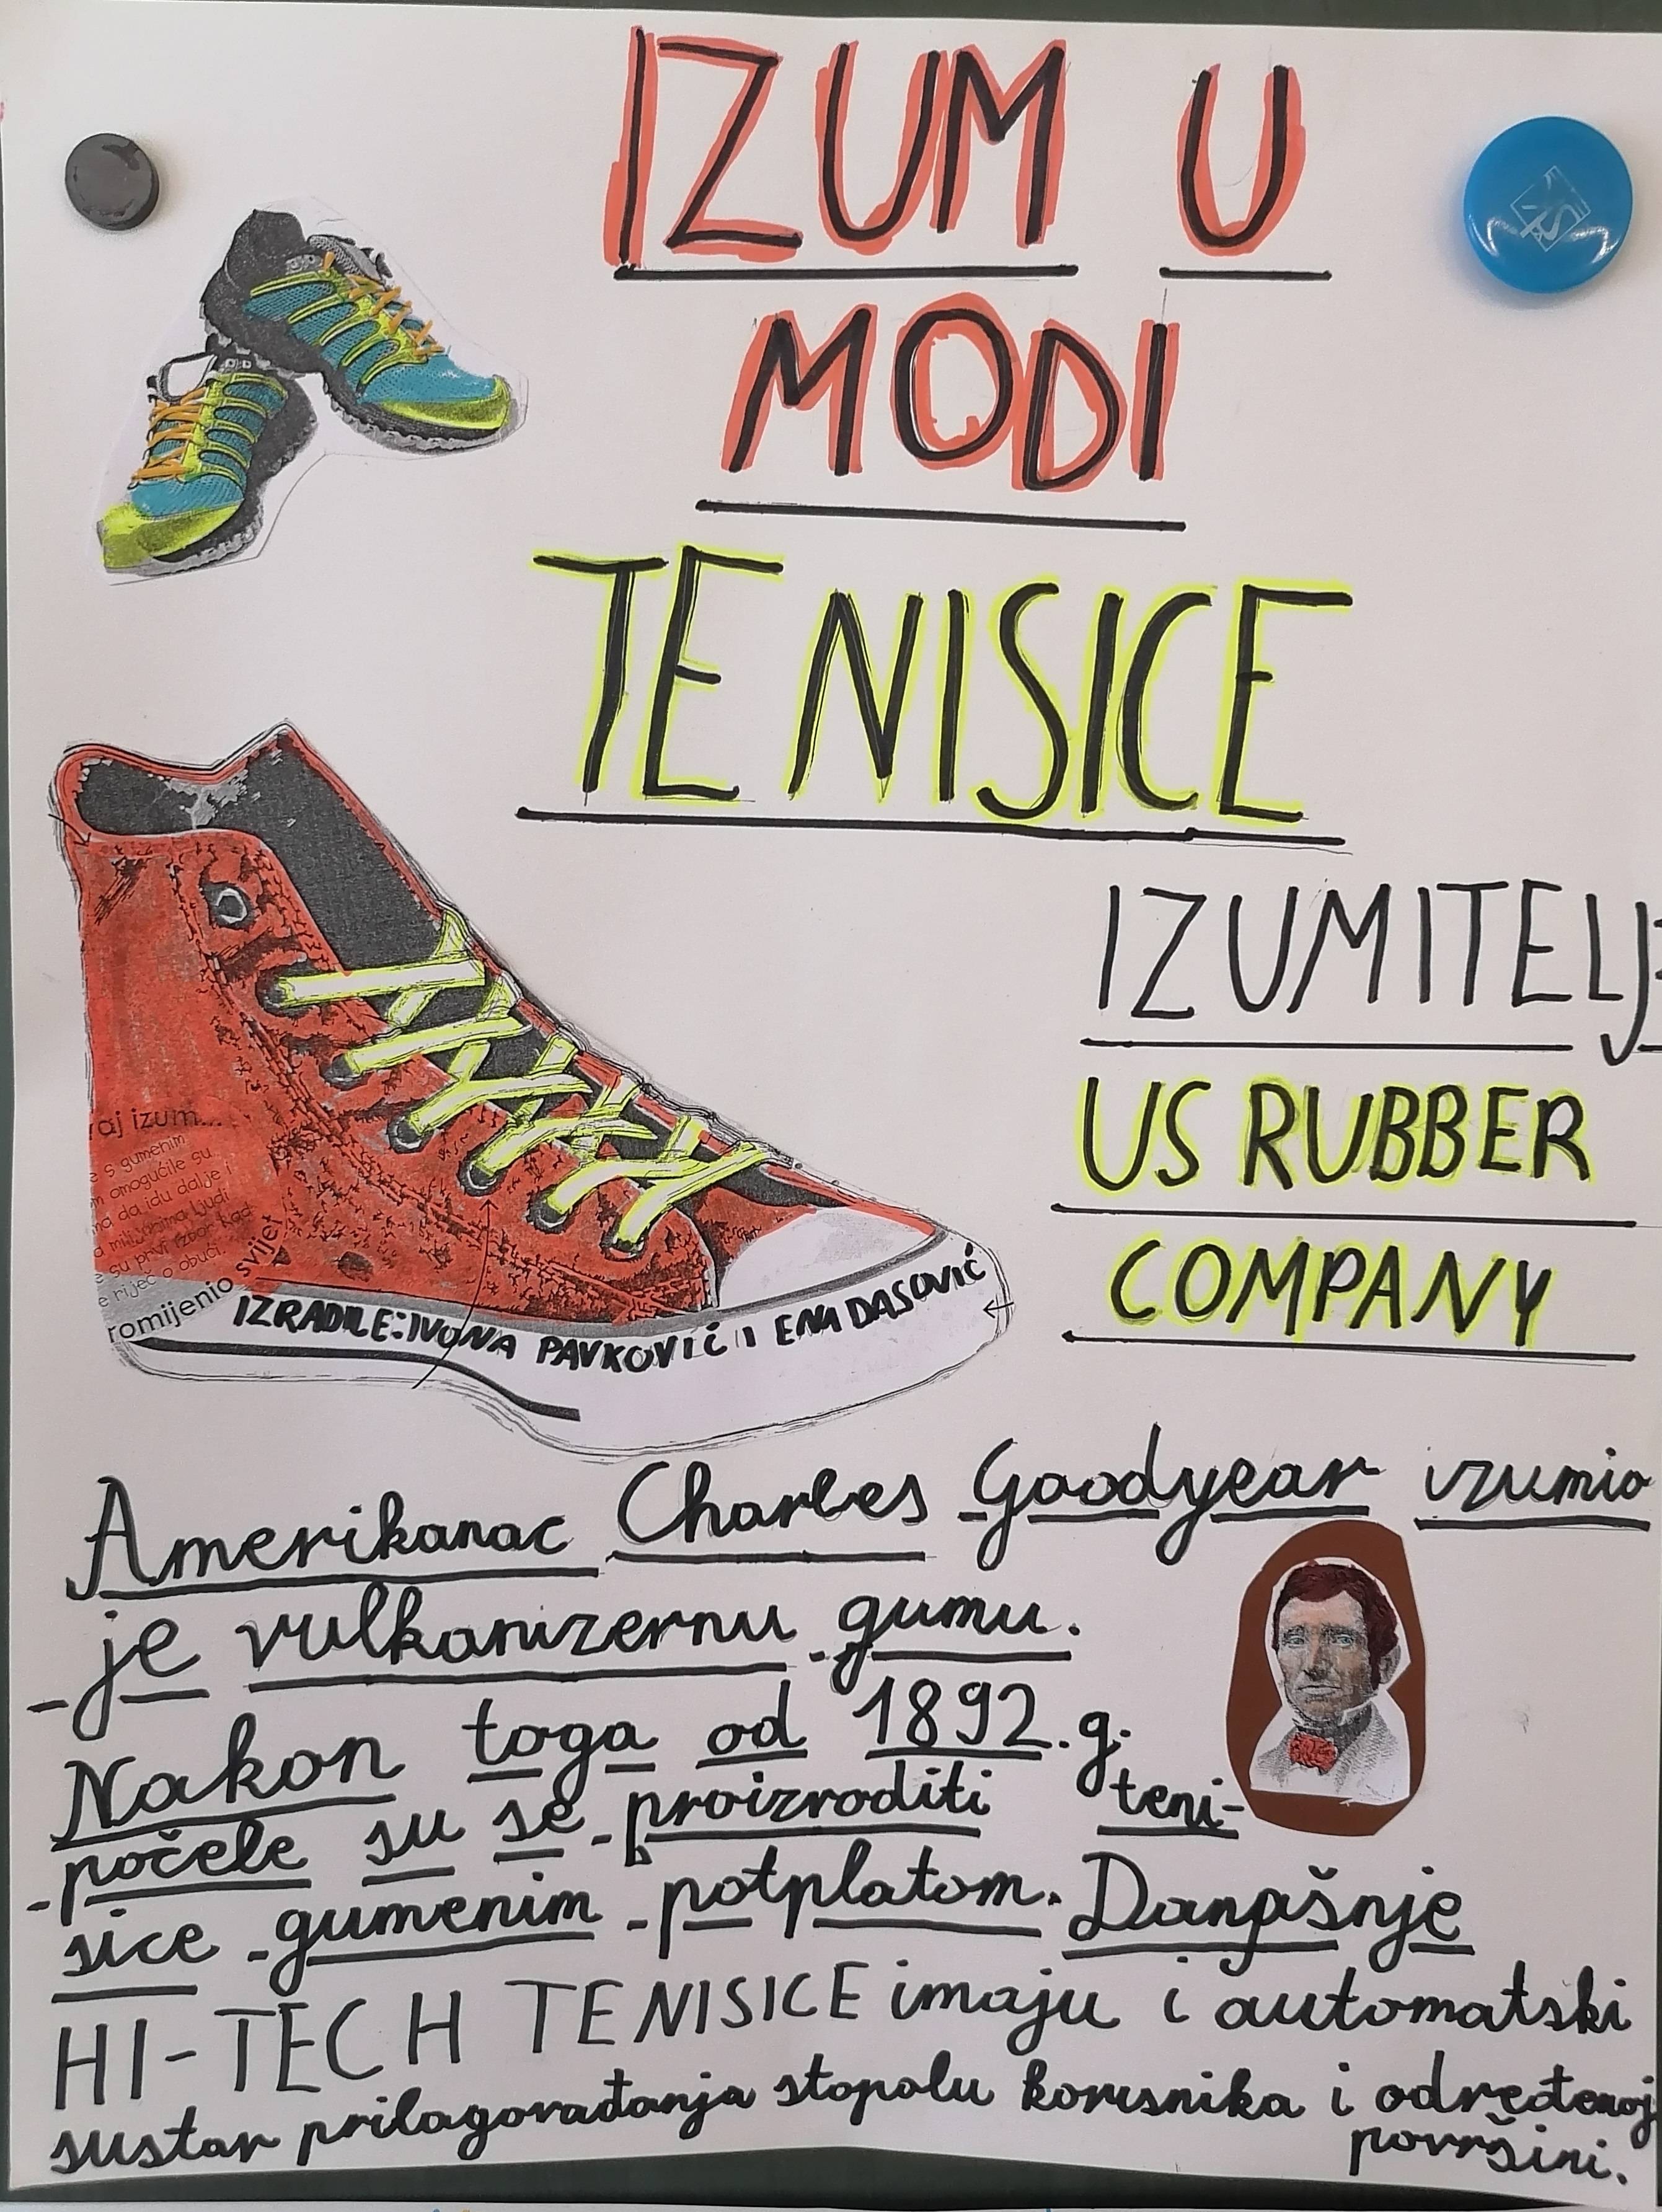 IZUM U
MODI
TENISICE
IZUMITELJ:
US RUBBER
COMPANY
raj izum...
e s gumenim
m omogućile su
ma da idu dalje i
a milijunima ljudi
e su prvi izbor kad
e riječ o obući.
romijenio svijet
IZRADILE: IVONA PAVKOVIĆ I ENA DASOVIĆ
Amerikanac Charles Goodyear izumio
je vulkanizernu gumu.
Nakon toga od 1892. g.
počele su se proizvoditi teni-
sice gumenim potplatom. Danpšnje
HI-TECH TENISICE imaju i automatski
sustav prilagovađanja stopolu korisnika i određenoj
površini.